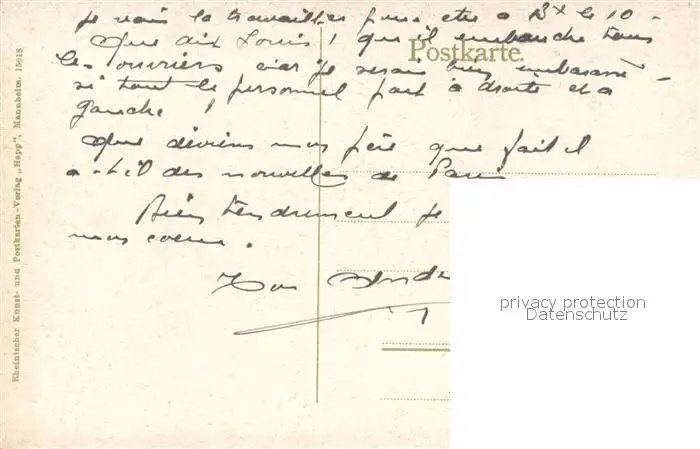 je vais la travailler pour etre a Bx le 10 -
Que dit Louis ! que il embauche tous
Postkarte.
les ouvriers car je serais bien embarassé -
si tout le personnel part à droite et a
gauche !
Que deviens mon père que fait il
a-t-il des nouvelles de Paris
Bien tendrement je
mon coeur.
Ton
Rheinischer Kunst- und Postkarten-Verlag „Happ", Mannheim. 15018
privacy protection
Datenschutz